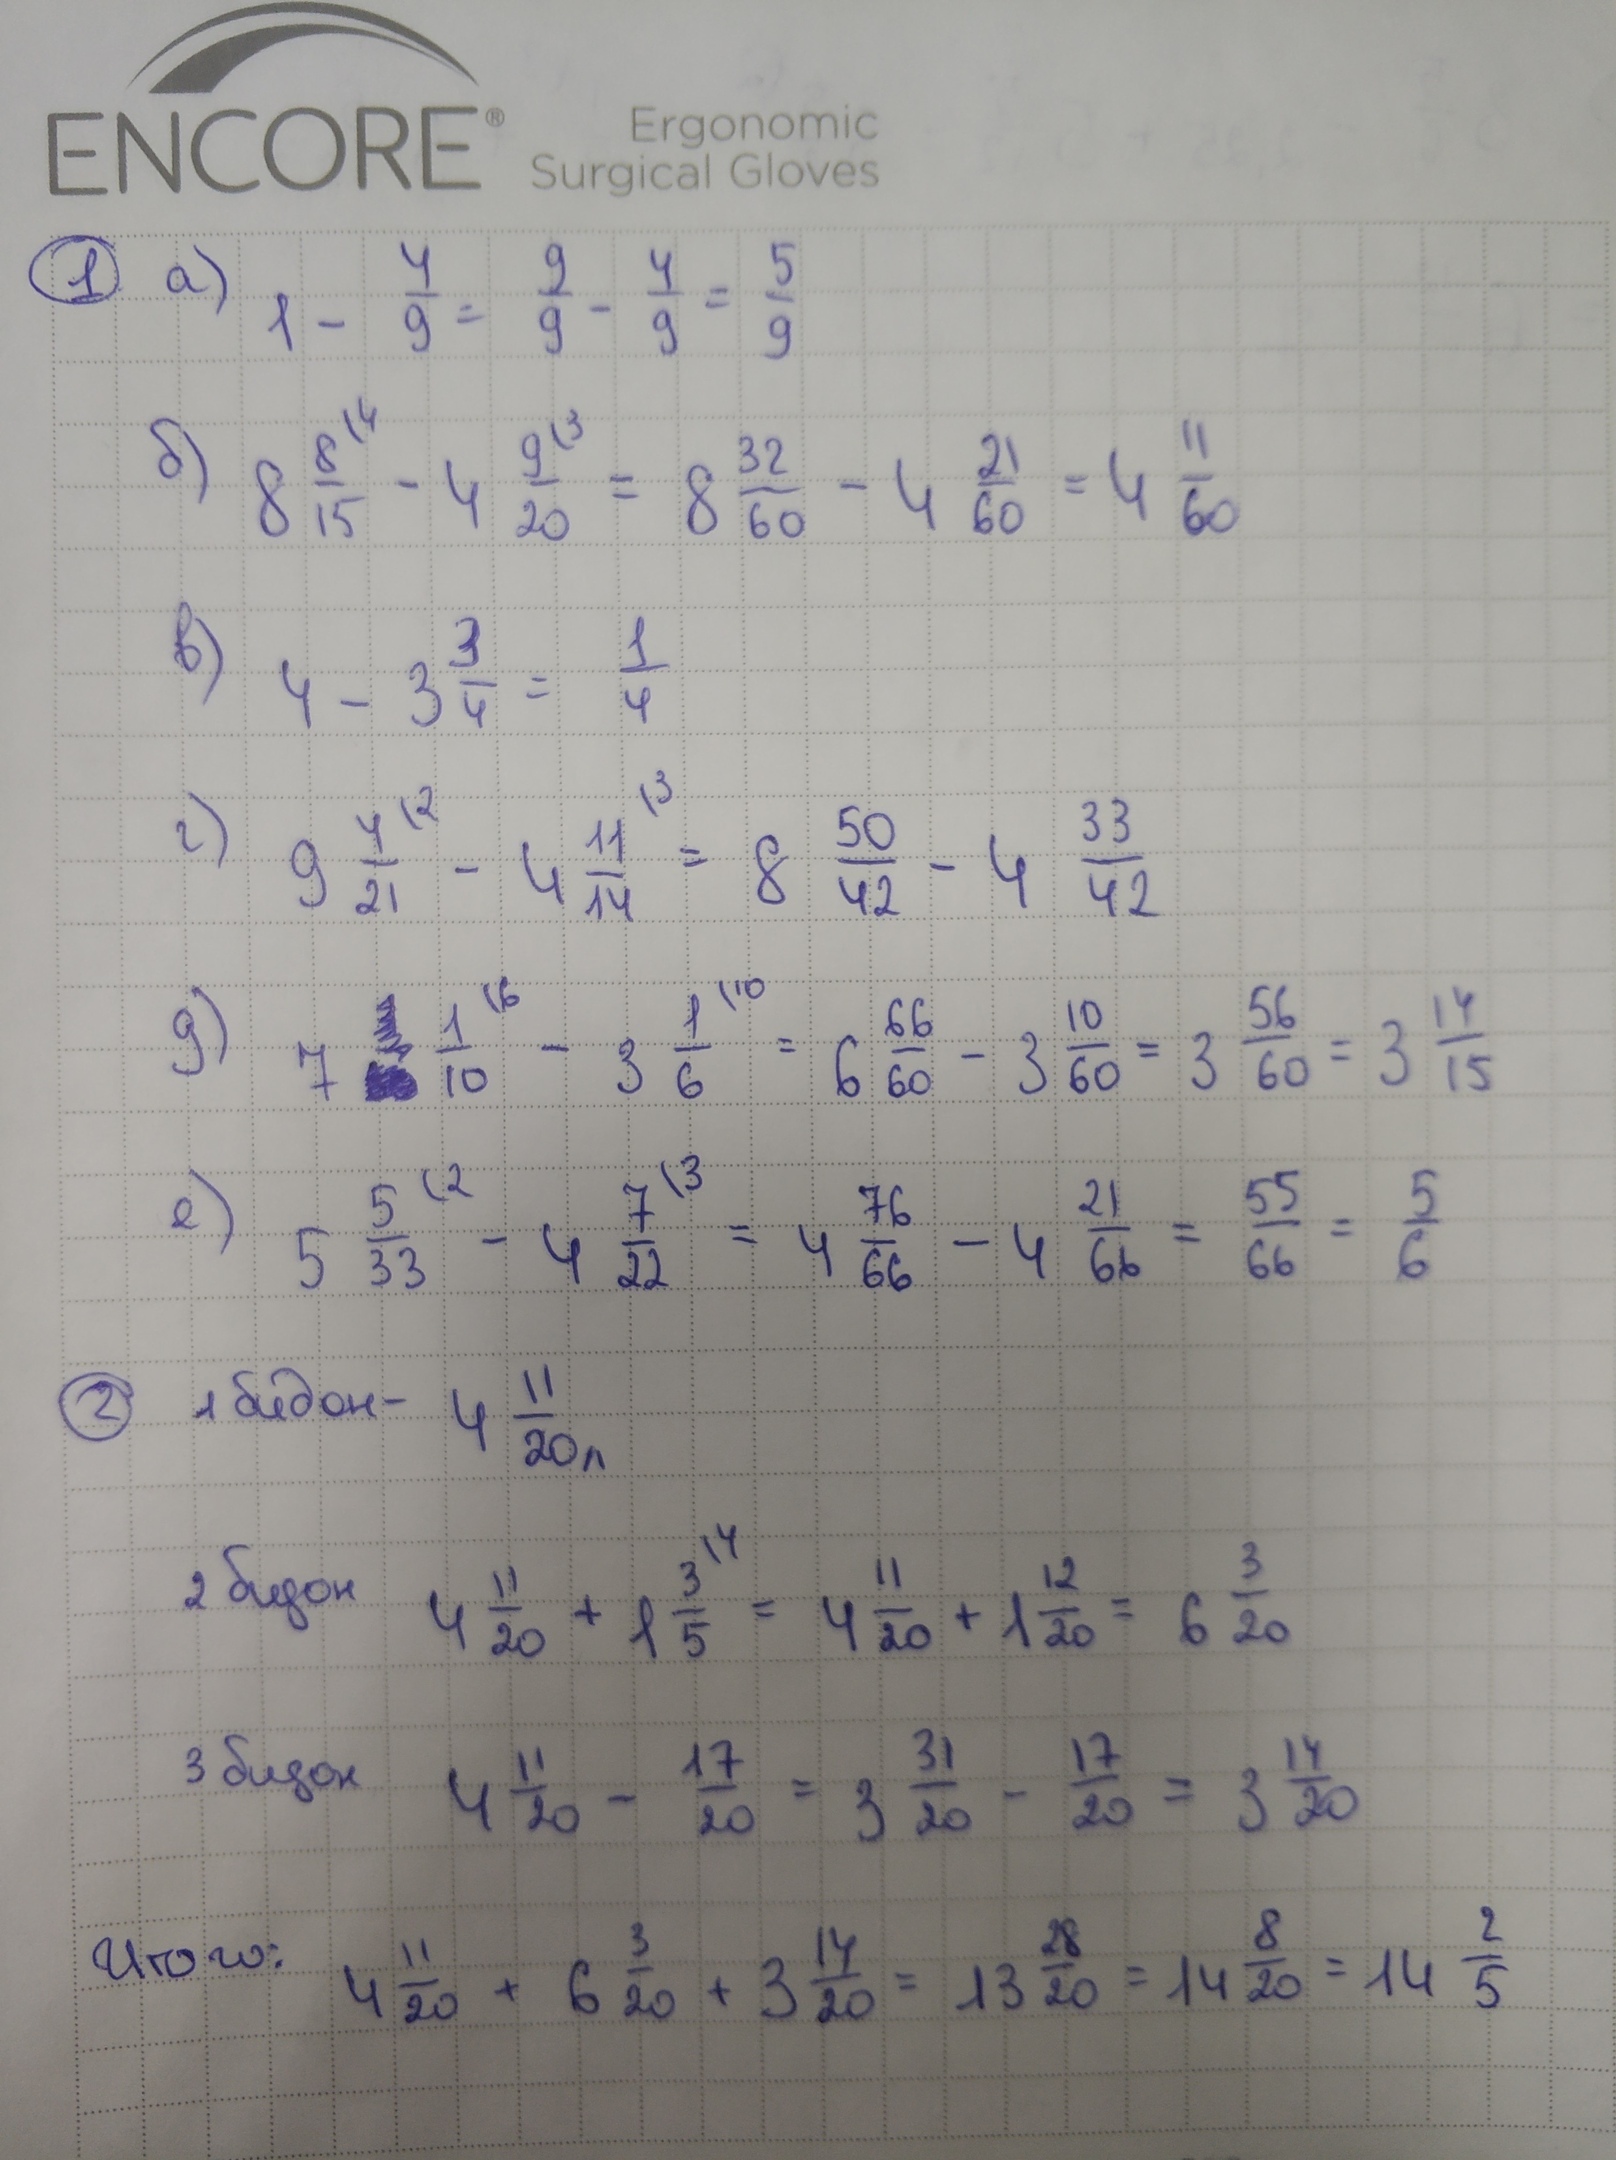 ENCORE® Ergonomic
Surgical Gloves
1 а) 1 - 4/9 = 9/9 - 4/9 = 5/9
б) 8 8/15 (4 - 4 9/20 (3 = 8 32/60 - 4 21/60 = 4 11/60
в) 4 - 3 3/4 = 1/4
г) 9 4/21 (2 - 4 11/14 (3 = 8 50/42 - 4 33/42
д) 7 1/10 (6 - 3 1/6 (10 = 6 66/60 - 3 10/60 = 3 56/60 = 3 14/15
е) 5 5/33 (2 - 4 7/22 (3 = 4 76/66 - 4 21/66 = 55/66 = 5/6
2 1 бидон - 4 11/20 л
2 бидон 4 11/20 + 1 3/5 (4 = 4 11/20 + 1 12/20 = 6 3/20
3 бидон 4 11/20 - 17/20 = 3 31/20 - 17/20 = 3 14/20
Итого: 4 11/20 + 6 3/20 + 3 14/20 = 13 28/20 = 14 8/20 = 14 2/5